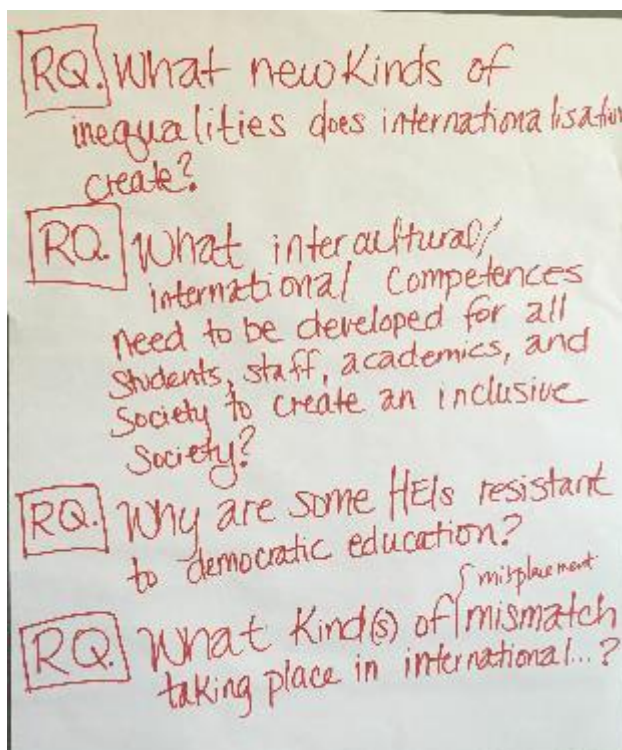 RQ. What new Kinds of
inequalities does internationalisation
create?
RQ. What intercultural/
international Competences
need to be developed for all
Students, staff, academics, and
Society to create an inclusive
Society?
RQ. Why are some HEIs resistant
to democratic education?
misplacement
RQ. What Kind(s) of mismatch
taking place in international...?